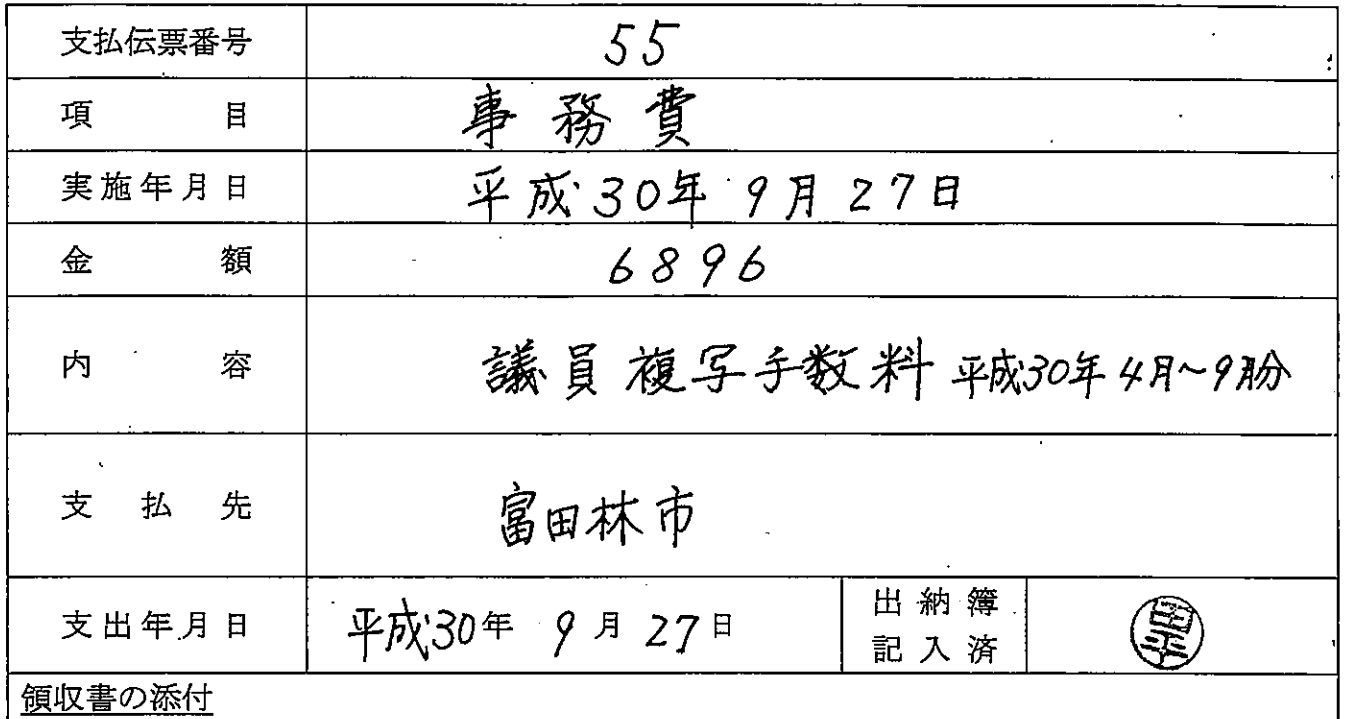 支払伝票番号 55
項目 事務費
実施年月日 平成30年9月27日
金額 6896
内容 議員複写手数料 平成30年4月~9月分
支払先 富田林市
支出年月日 平成30年 9月27日 出納簿記入済
領収書の添付